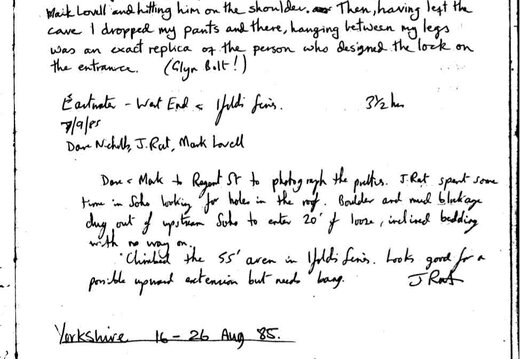 Mark Lovell and hitting him on the shoulder. Then, having left the
cave I dropped my pants and there, hanging between my legs
was an exact replica of the person who designed the lock on
the entrance. (Glyn Bolt!)
Eastwater - West End & Ifoldi Finis. 3½ hrs
7/9/85
Dave Nicholls, J.Rat, Mark Lovell
Dave & Mark to Regent St to photograph the pretties. J.Rat spent some
time in Soho looking for holes in the roof. Boulder and mud blockage
dug out of upstream Soho to enter 20' of loose, inclined bedding
with no way on.
Climbed the 55' aven in Ifoldi Finis. Looks good for a
possible upward extension but needs bang. J Rat
Yorkshire 16 - 26 Aug 85.